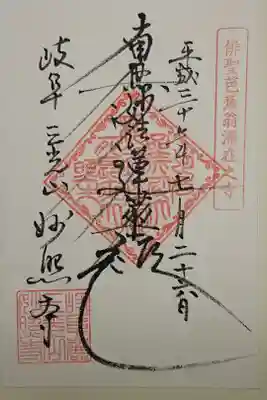 俳聖芭蕉翁滞在之寺
平成二十六年七月二十六日
南無妙法蓮華経
岐阜 三光山 妙照寺